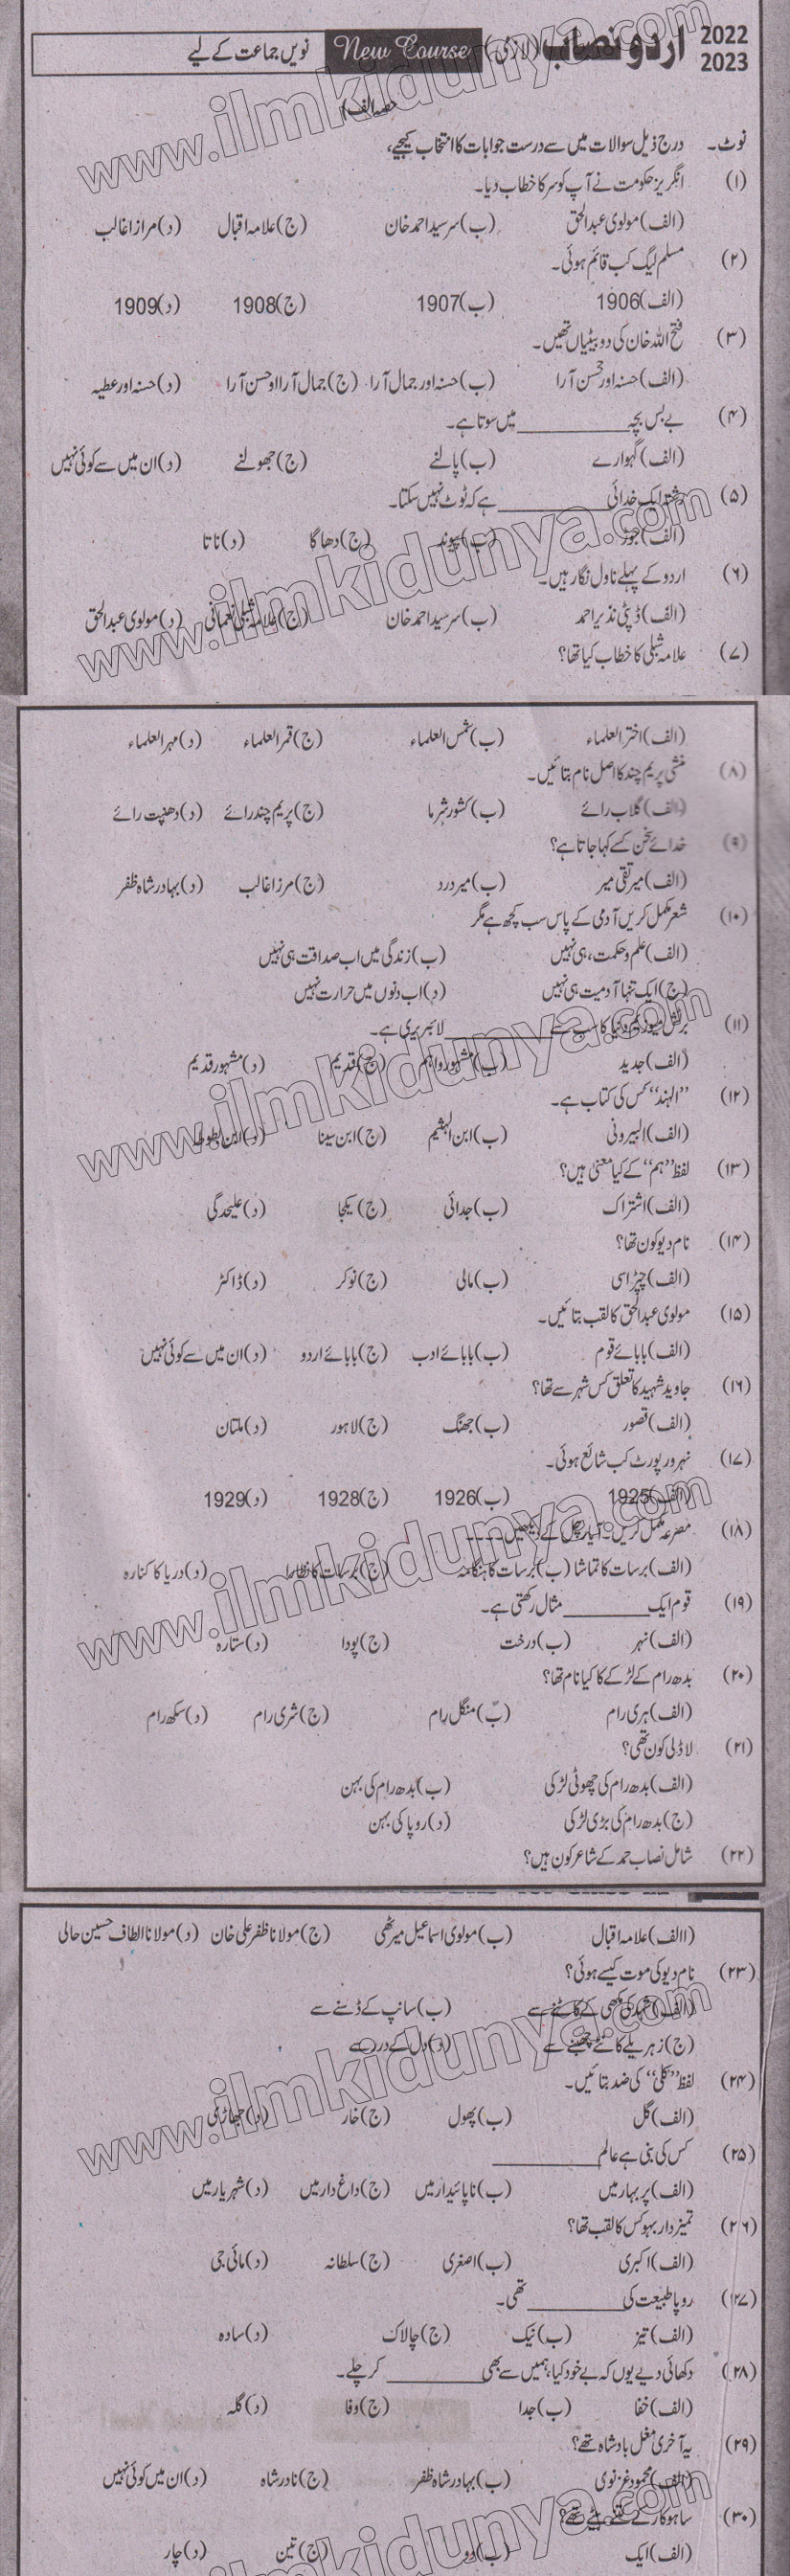 2022
2023
اردو نصاب (لازمی) New Course نویں جماعت کے لیے
حصہ الف)
نوٹ۔ درج ذیل سوالات میں سے درست جوابات کا انتخاب کیجیے،
(۱) انگریز حکومت نے آپ کو سر کا خطاب دیا۔
(الف) مولوی عبدالحق (ب) سرسید احمد خان (ج) علامہ اقبال (د) مرزا غالب
(۲) مسلم لیگ کب قائم ہوئی۔
(الف) 1906 (ب) 1907 (ج) 1908 (د) 1909
(۳) فتح اللہ خان کی دو بیٹیاں تھیں۔
(الف) حسنہ اور حسن آرا (ب) حسنہ اور جمال آرا (ج) جمال آرا اوحسن آرا (د) حسنہ اور عطیہ
(۴) بے بس بچہ __________ میں سوتا ہے۔
(الف) گہوارے (ب) پالنے (ج) جھولنے (د) ان میں سے کوئی نہیں
(۵) رشتہ ایک خدائی __________ ہے کہ ٹوٹ نہیں سکتا۔
(الف) جوڑ (ب) پیوند (ج) دھاگا (د) ناتا
(۶) اردو کے پہلے ناول نگار ہیں۔
(الف) ڈپٹی نذیر احمد (ب) سرسید احمد خان (ج) علامہ شبلی نعمانی (د) مولوی عبدالحق
(۷) علامہ شبلی کا خطاب کیا تھا؟
(الف) اختر العلماء (ب) شمس العلماء (ج) قمر العلماء (د) مہر العلماء
(۸) منشی پریم چند کا اصل نام بتائیں۔
(الف) گلاب رائے (ب) کشور شرما (ج) پریم چند رائے (د) دھنپت رائے
(۹) خدائے سخن کسے کہا جاتا ہے؟
(الف) میر تقی میر (ب) میر درد (ج) مرزا غالب (د) بہادر شاہ ظفر
(۱۰) شعر مکمل کریں آدمی کے پاس سب کچھ ہے مگر
(الف) علم و حکمت، ہی نہیں (ب) زندگی میں اب صداقت ہی نہیں
(ج) ایک تنہا آدمیت ہی نہیں (د) اب دلوں میں حرارت نہیں
(۱۱) برٹش میوزیم دنیا کا سب سے __________ لائبریری ہے۔
(الف) جدید (ب) مشہور و اہم (ج) قدیم (د) مشہور قدیم
(۱۲) "الہند" کس کی کتاب ہے۔
(الف) البیرونی (ب) ابن الہشیم (ج) ابن سینا (د) ابن بطوطہ
(۱۳) لفظ "ہم" کے کیا معنیٰ ہیں؟
(الف) اشتراک (ب) جدائی (ج) یکجا (د) علیحدگی
(۱۴) نام دیو کون تھا؟
(الف) چپڑاسی (ب) مالی (ج) نوکر (د) ڈاکٹر
(۱۵) مولوی عبدالحق کا لقب بتائیں۔
(الف) بابائے قوم (ب) بابائے ادب (ج) بابائے اردو (د) ان میں سے کوئی نہیں
(۱۶) جاوید شہید کا تعلق کس شہر سے تھا؟
(الف) قصور (ب) جھنگ (ج) لاہور (د) ملتان
(۱۷) نہرور پورٹ کب شائع ہوئی۔
(الف) 1925 (ب) 1926 (ج) 1928 (د) 1929
(۱۸) مصرعہ مکمل کریں۔ آ یار چل کے دیکھیں۔۔۔۔۔
(الف) برسات کا تماشا (ب) برسات کا ہنگامہ (ج) برسات کا نظارا (د) دریا کا کنارہ
(۱۹) قوم ایک __________ مثال رکھتی ہے۔
(الف) نہر (ب) درخت (ج) پودا (د) ستارہ
(۲۰) بدھ رام کے لڑکے کا کیا نام تھا؟
(الف) ہری رام (ب) منگل رام (ج) شری رام (د) سکھ رام
(۲۱) لاڈلی کون تھی؟
(الف) بدھ رام کی چھوٹی لڑکی (ب) بدھ رام کی بہن
(ج) بدھ رام کی بڑی لڑکی (د) روپا کی بہن
(۲۲) شامل نصاب حمد کے شاعر کون ہیں؟
(االف) علامہ اقبال (ب) مولوی اسماعیل میرٹھی (ج) مولانا ظفر علی خان (د) مولانا الطاف حسین حالی
(۲۳) نام دیو کی موت کیسے ہوئی؟
(الف) شہد کی مکھی کے کاٹنے سے (ب) سانپ کے ڈسنے سے
(ج) زہریلے کانٹے چبھنے سے (د) دل کے درد سے
(۲۴) لفظ "کلی" کی ضد بتائیں۔
(الف) گل (ب) پھول (ج) خار (د) جھاڑی
(۲۵) کس کی بنی ہے عالم __________
(الف) پر بہار میں (ب) ناپائیدار میں (ج) داغ دار میں (د) شہریار میں
(۲۶) تمیز دار بہو کس کا لقب تھا؟
(الف) اکبری (ب) اصغری (ج) سلطانہ (د) مائی جی
(۲۷) روپا طبیعت کی __________ تھی۔
(الف) تیز (ب) نیک (ج) چالاک (د) سادہ
(۲۸) دکھائی دیے یوں کہ بے خود کیا، ہمیں سے بھی __________ کر چلے۔
(الف) خفا (ب) جدا (ج) وفا (د) گلہ
(۲۹) یہ آخری مغل بادشاہ تھے؟
(الف) محمود غزنوی (ب) بہادر شاہ ظفر (ج) نادر شاہ (د) ان میں کوئی نہیں
(۳۰) ساہوکار کے کتنے بیٹے تھے؟
(الف) ایک (ب) دو (ج) تین (د) چار
www.ilmkidunya.com
www.ilmkidunya.com
www.ilmkidunya.com
www.ilmkidunya.com
www.ilmkidunya.com
www.ilmkidunya.com